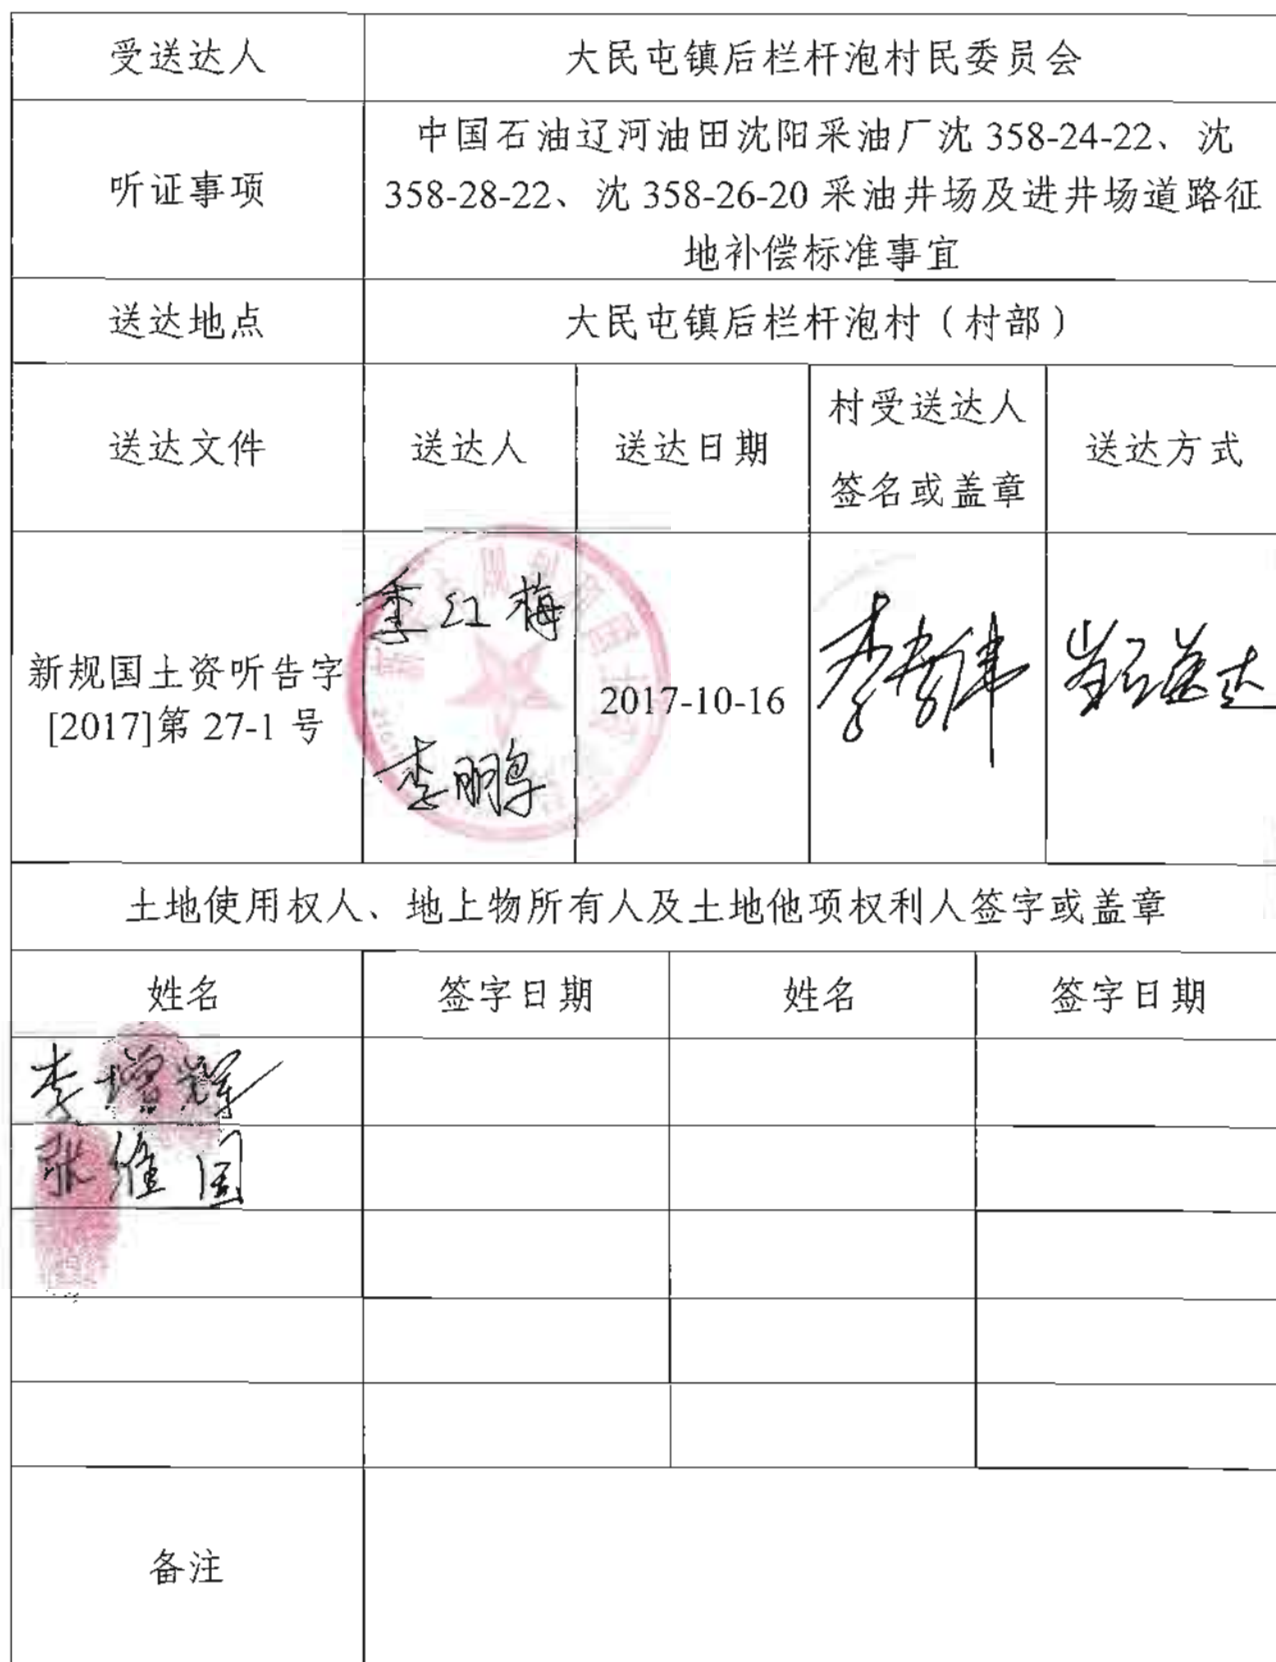 受送达人
大民屯镇后栏杆泡村民委员会
听证事项
中国石油辽河油田沈阳采油厂沈 358-24-22、沈
358-28-22、沈 358-26-20 采油井场及进井场道路征
地补偿标准事宜
送达地点
大民屯镇后栏杆泡村（村部）
送达文件
送达人
送达日期
村受送达人
签名或盖章
送达方式
新规国土资听告字
[2017]第 27-1 号
季红梅
李鹏
2017-10-16
送达
土地使用权人、地上物所有人及土地他项权利人签字或盖章
姓名
签字日期
姓名
签字日期
李增辉
张维国
备注